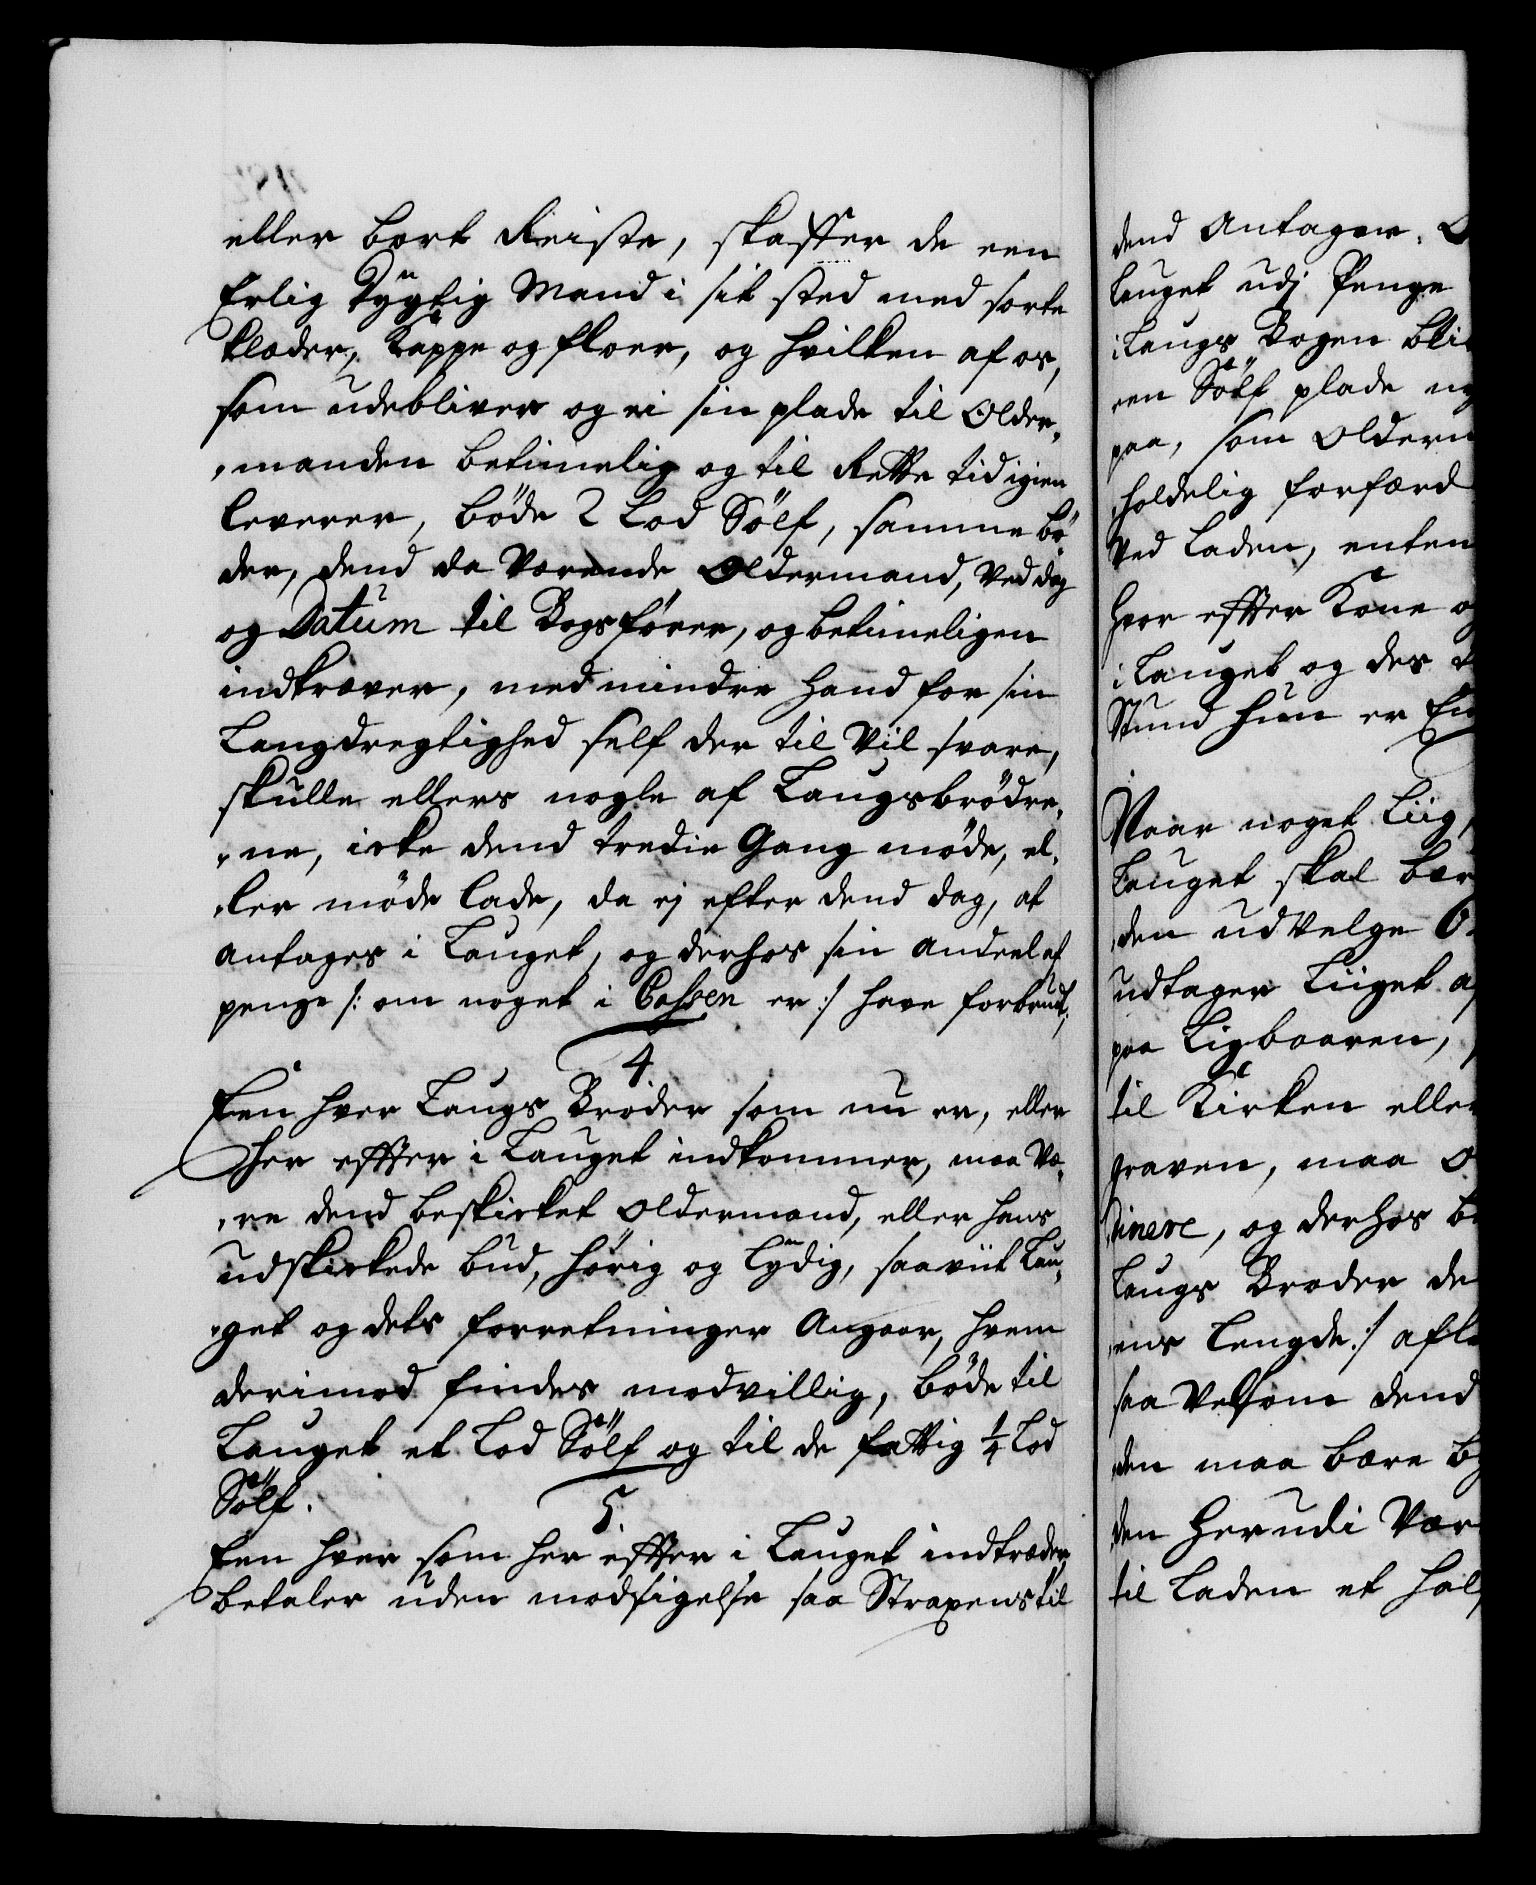 eller bort Reiste, skaffer de een
Erlig Dygtig Mand i sit sted med sorte
klæder, Kappe og floer, og hvilken af os,
som udebliver og ei sin plade til Older,
,manden betimelig og til Rette tid igien
leverer, bøde 2 Lod Sølf, samme bø
der, dend da Værende Oldermand, Ved dag
og Datum til Bogs fører, og betimeligen
indkræver, med mindre hand for sin
Langdregtighed self der til Vil svare,
skulle ellers nogle af Laugsbrødre,
,ne, icke dend tredie Gang møde, el,
,ler møde lade, da ej efter dend dag, at
antages i Lauget, og derhos sin andeel af
penge /: om noget i Cassen er :/ have forbrudt,
4.
Een hver Laugs Broder som nu er, eller
her effter i Lauget indkommer, maa Væ,
,re dend beskicket Oldermand, eller hans
udskickede bud, hørig og Lydig, saaviit Lau,
,get og dets forretninger Angaar, hvem
derimod findes modvillig, bøde til
Lauget et Lod Sølf og til de fattig ¼ Lod
Sølf.
5.
Een hver som her effter i Lauget indtræder,
betaler uden modsigelse saa Straxens til
dend Antager. O
Lauget udj Penge
i Laugs Bogen bli
een Sølf plade
paa, som Olderm
,holdelig forfærd
Ved Laden, enten
hvor effter Kone o
i Lauget og des
Stund hun er En
Naar noget Liig,
Lauget skal bær
,den udvelge
udtager Liiget a
paa Ligbaaren,
til Kirken eller
graven, maa O
,dinere, og derhos b
Laugs Broder de
,ens Lengde :/ afl
saa Velsom dend
,den maa bære b
den herudi Vær
til Laden et hal